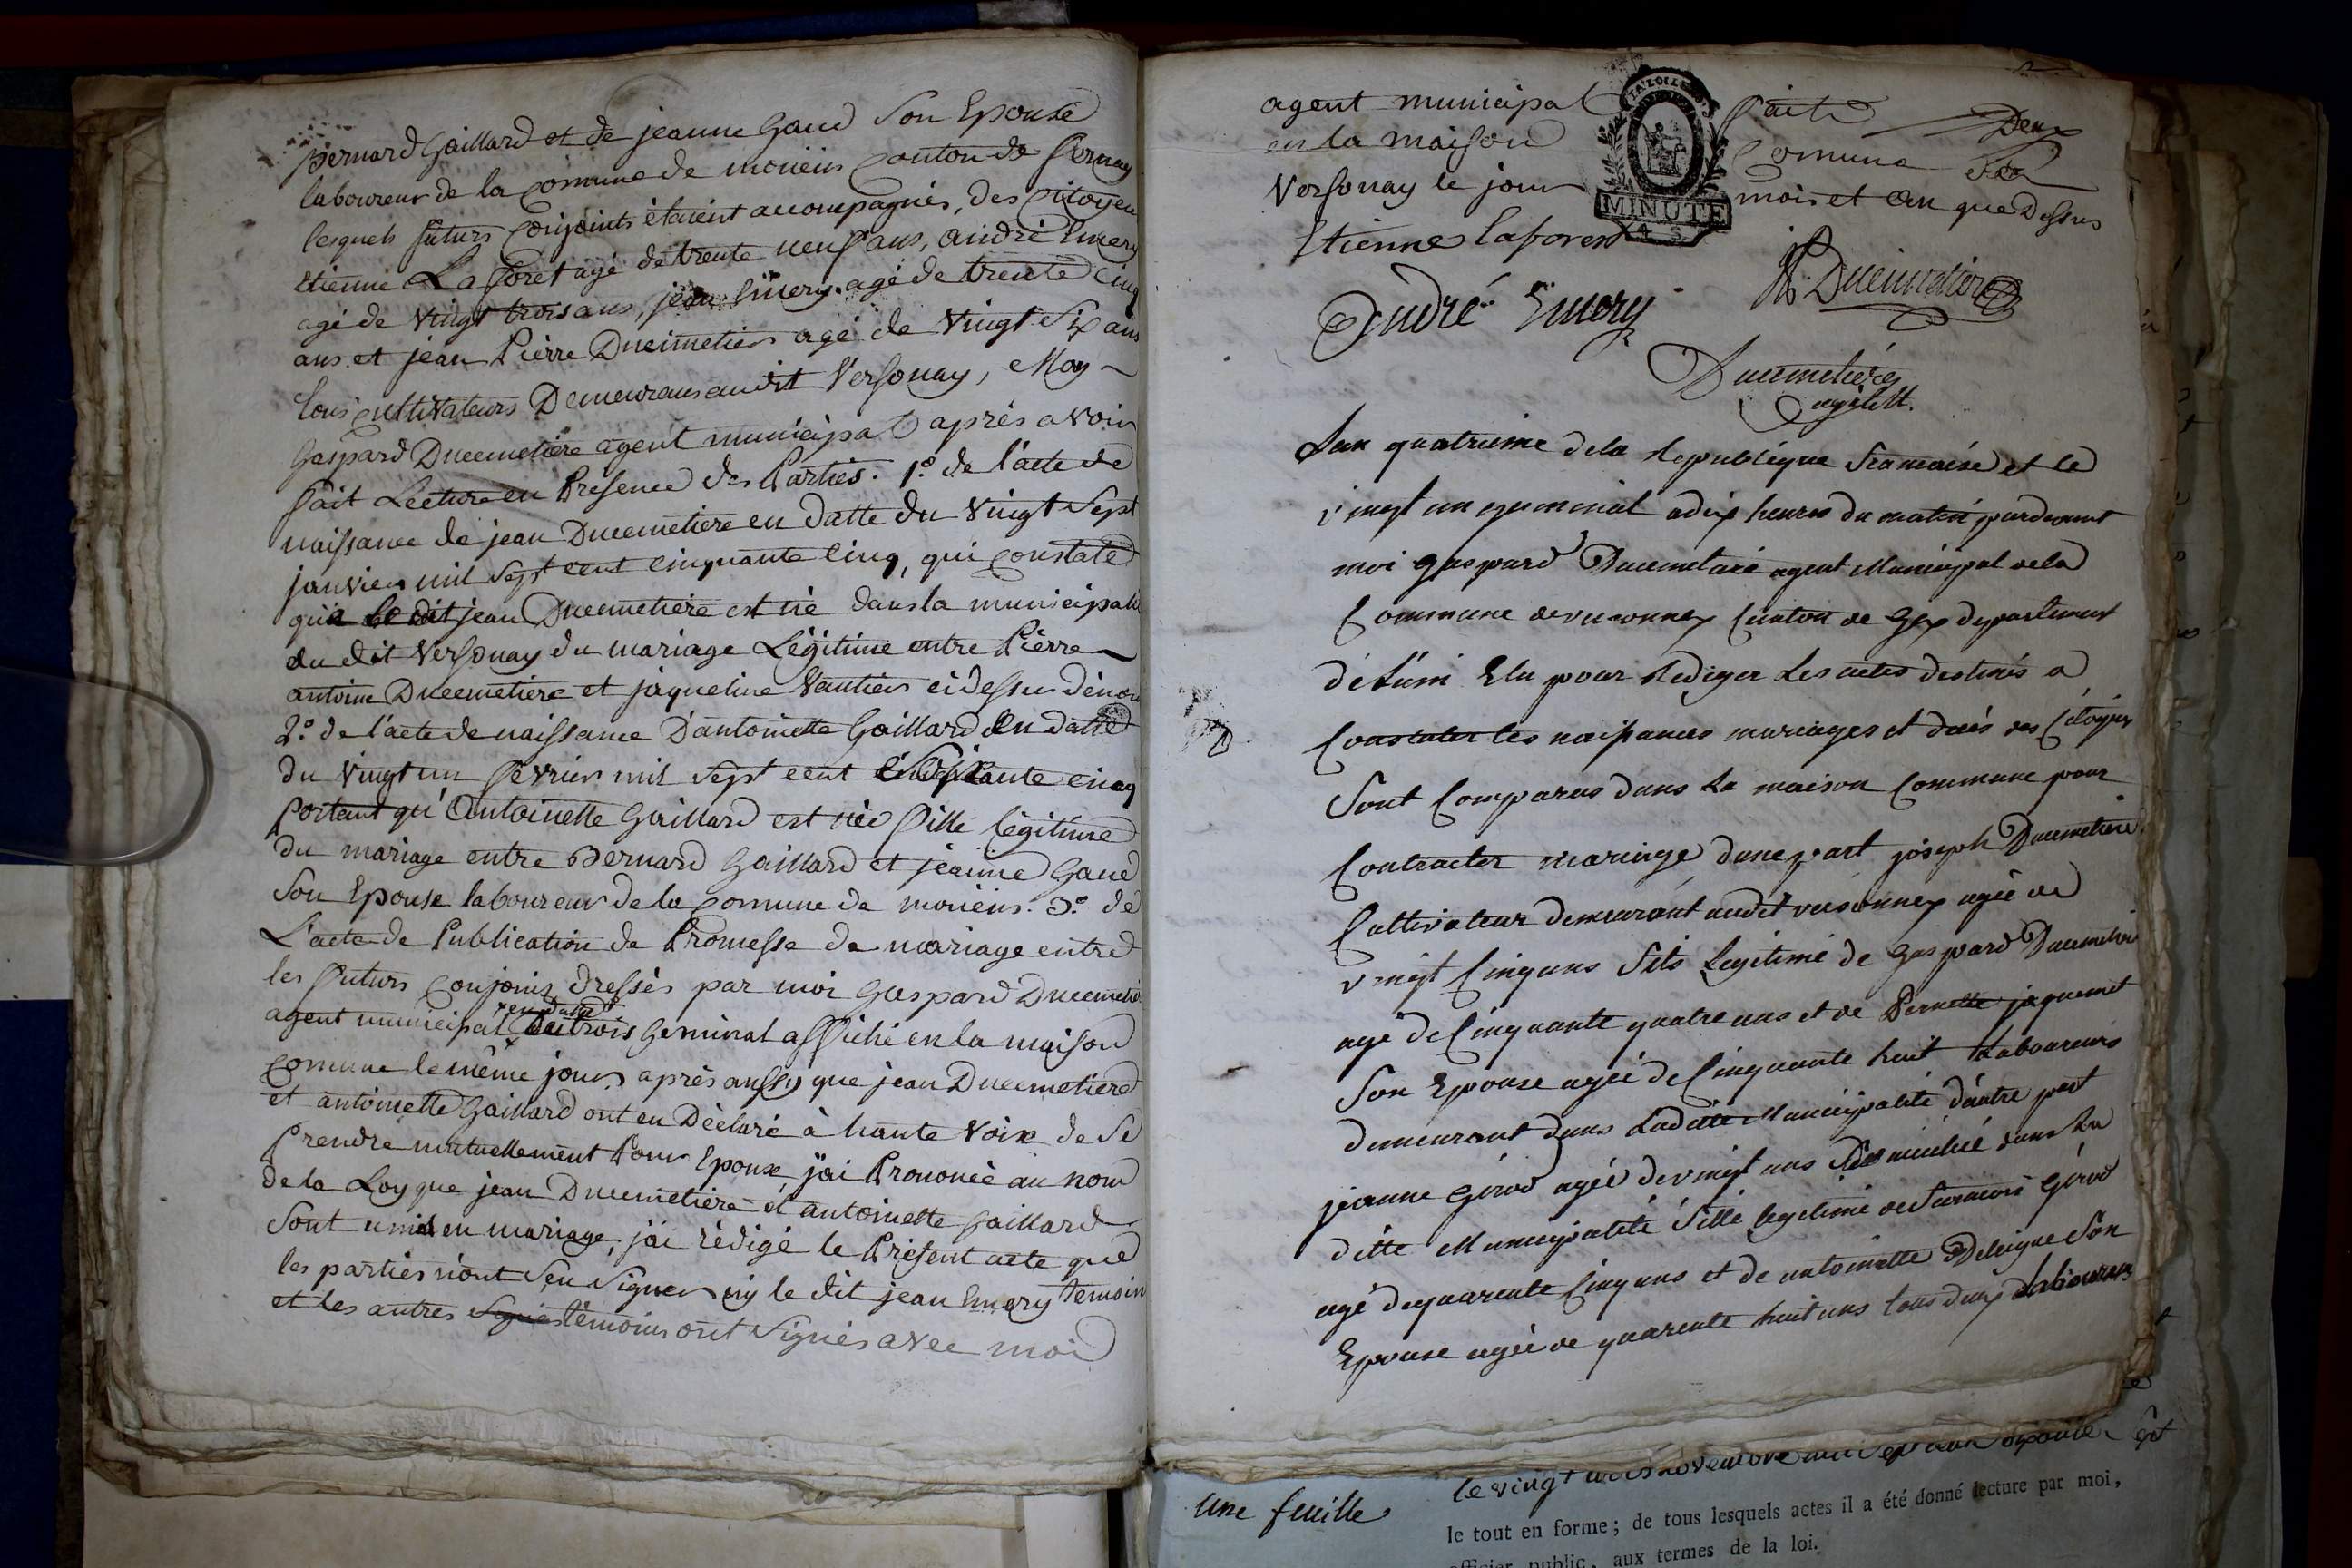 Bernard Gaillard et de jeanne Gaud Son Epouse
laboureur de la Comune de moiiens Canton de Fernay
lesquels futurs Conjoints étaient accompagnés, des Citoyens
Etienne La foret agé de trente neuf ans, andré Emery
agé de Vingt trois ans, jean Emery agé de trente Cinq
ans et jean Pièrre Ducimetiere agé de Vingt Six ans
tous Cultivateurs Demeurans audit Versonay, Moy
Gaspard Ducemetière agent municipal après avoir
fait Lecture en Presence des Parties. 1º de l'acte de
naissance de jean Ducemetiere en datte du Vingt Sept
janvier mil Sept cent Cinquante Cinq, qui Constate
que le dit jean Ducemetière est né dans la municipali
du dit Versonay du mariage Légitime entre Pièrre
antoine Ducemetière et jaqueline Vautier ci dessus dénom
2º de l'acte de naissance D'antoinette Gaillard En datte
du Vingt un fevrier mil Sept cent Soixante cinq
Portant qu'Antoinette Gaillard est née fille légitime
du mariage entre Bernard Gaillard et jeanne Gaud
Son Epouse laboureur de la Comune de moiiens. 3º de
L'acte de Publication de Promesse de mariage entre
les futurs Conjoins dressés par moi Gaspard Ducemetie
agent municipal en datte du trois Germinal affiché en la maison
Comune le même jour, après aussy que jean Ducemetiere
et antoinette Gaillard ont eu Déclaré à haute Voix de Se
Prendre mutuellement Pour Epoux, j'ai Prononcé au nom
de la Loy que jean Ducemetière et antoinette Gaillard
Sont unis en mariage, j'ai rédigé le Présent acte que
les parties n'ont Seu Signer ny le dit jean Emery témoin
et les autres Signés témoins ont Signés avec moi
agent municipal fait
en la maison Comune
Versonay le jour mois et an que Dessus
MINUTE
Etienne laforest
André Emery JP Ducimetiere
Ducemetière
agent M.
Lan quatrieme de la Republique francaise et le
vingt un germinal a dix heures du matin pardevant
moi gaspard Ducemetiere agent Municipal de la
Commune de versonnex Canton de Gex departement
de L'ain Elu pour Rediger Les actes destinés a
Constater les naissances mariages et décès des Citoyens
Sont Comparus dans La maison Commune pour
Contracter mariage d'une part joseph Ducemetiere
Cultivateur demeurant audit versonnex agée de
vingt Cinq ans fils Legitime de Gaspard Ducemetiere
agé de Cinquante quatre ans et de Pernette jaquemet
Son Epouse agée de Cinquante huit Laboureurs
demeurant dans Ladite Municipalité d'autre part
jeanne Girod agée de vingt ans domiciliée dans La
ditte Municipalité fille legitime de francois Girod
agé de quarante Cinq ans et de antoinette Deleigne Son
Epouse agée de quarante huit ans tous deux Laboureurs
une feuille
le tout en forme; de tous lesquels actes il a été donné lecture par moi,
officier public, aux termes de la loi.